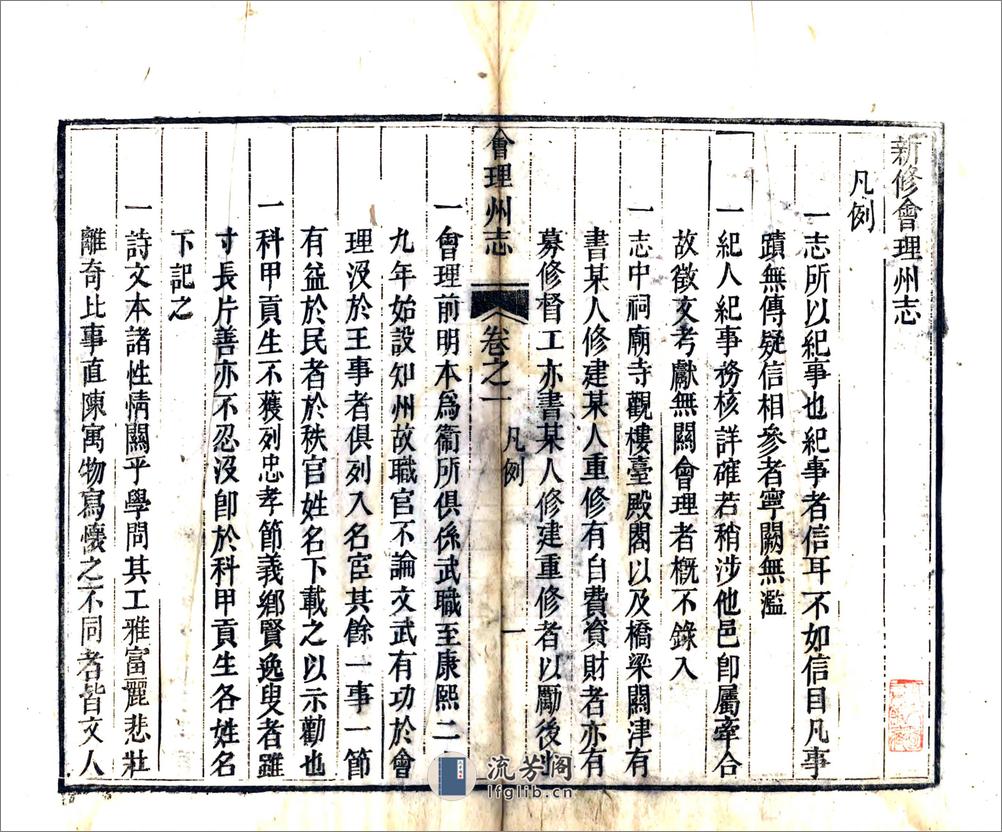 新修會理州志
凡例
一志所以紀事也紀事者信耳不如信目凡事
蹟無傳疑信相參者寧闕無濫
一紀人紀事務核詳確若稍涉他邑卽屬牽合
故徵文考獻無關會理者概不錄入
一志中祠廟寺觀樓臺殿閣以及橋梁關津有
書某人修建某人重修有自費資財者亦有
募修督工亦書某人修建重修者以勵後也
會理州志
卷之一
凡例
一
一會理前明本爲衞所俱係武職至康熙二十
九年始設知州故職官不論文武有功於會
理沒於王事者俱列入名宦其餘一事一節
有益於民者於秩官姓名下載之以示勸也
一科甲貢生不獲列忠孝節義鄉賢逸叟者雖
寸長片善亦不忍沒卽於科甲貢生各姓名
下記之
一詩文本諸性情關乎學問其工雅富麗悲壯
離奇比事直陳寓物寫懷之不同者皆文人
流芳阁
lfglib.cn